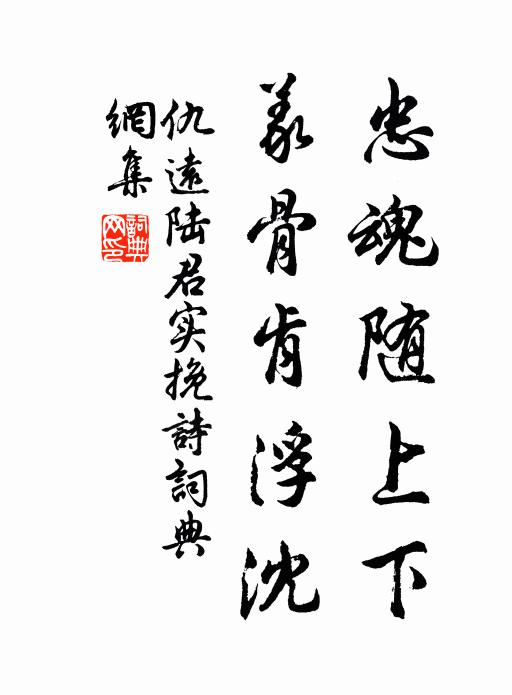 忠魂随上下
义骨肯浮沈
仇遠陆君实挽詩詞典
網集
詞典网印